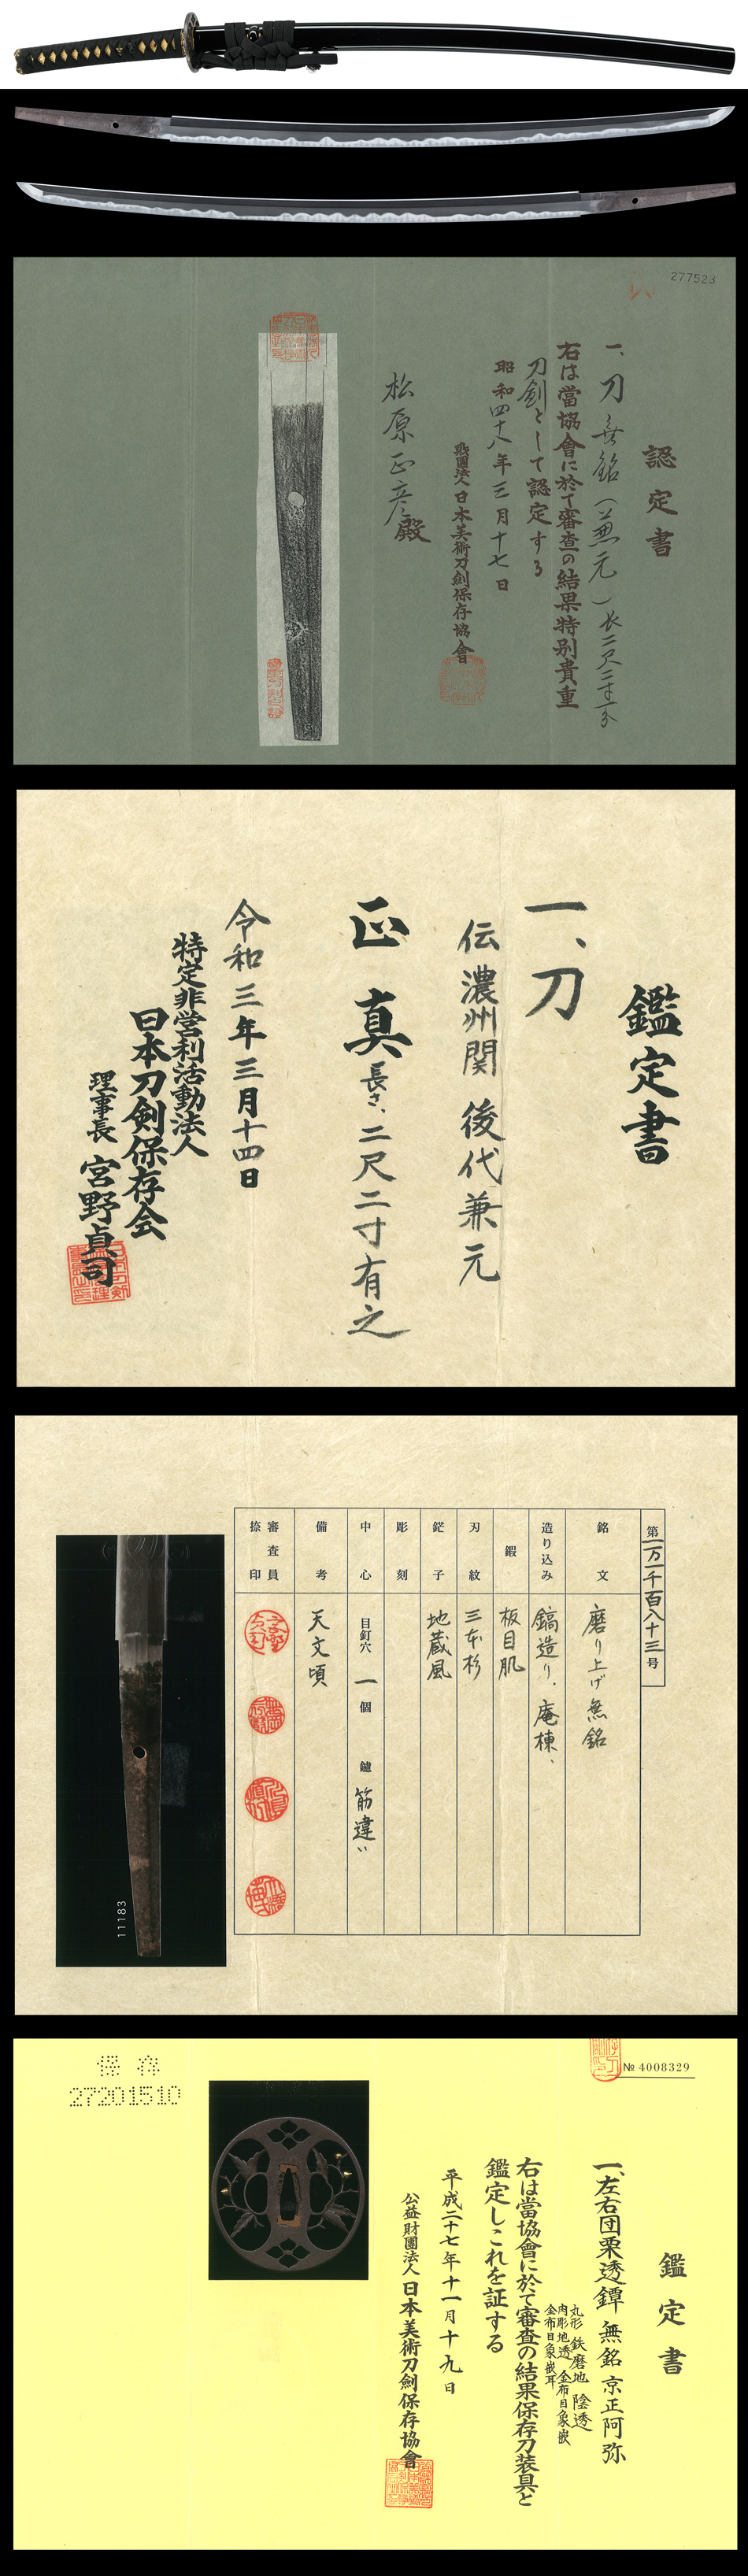 277523
認定書
一、刀 無銘（兼元）長二尺二寸一分
右は當協會に於て審査の結果特別貴重
刀剣として認定する
昭和四十八年三月十七日
財團法人日本美術刀劍保存協會
松原正彦殿
鑑定書
一、刀
伝濃州関 後代兼元
正真 長さ、二尺二寸有之
令和三年三月十四日
特定非営利活動法人
日本刀剣保存会
理事長 宮野貞司
第一万一千百八十三号
銘文 磨り上げ 無銘
造り込み 鎬造り、庵棟、
鍜 板目肌
刃紋 三本杉
鋩子 地蔵風
彫刻
中心 目釘穴 一個 鑢 筋違い
備考 天文頃
審査員
捺印
11183
保存
27201510
№ 4008329
鑑定書
一、左右団栗透鐔 無銘 京正阿弥
丸形 鉄磨地 陰透
肉彫地透 金布目象嵌
金布目象嵌耳
右は當協會に於て審査の結果保存刀装具と
鑑定しこれを証する
平成二十七年十一月十九日
公益財團法人日本美術刀劍保存協會